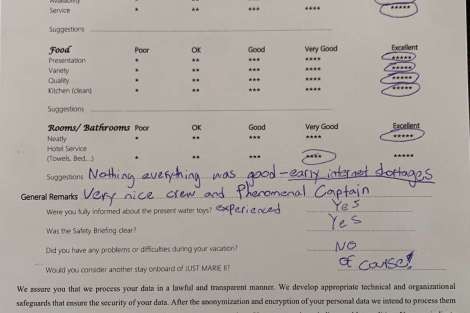 Service * ** *** **** *****
Suggestions
Food Poor OK Good Very Good Excellent
Presentation * ** *** **** *****
Variety * ** *** **** *****
Quality * ** *** **** *****
Kitchen (clean) * ** *** **** *****
Suggestions
Rooms/ Bathrooms Poor OK Good Very Good Excellent
Neatly * ** *** **** *****
Hotel Service
(Towels, Bed...) * ** *** **** *****
Suggestions Nothing everything was good - early internet shortages
General Remarks Very nice crew and Phenomenal Captain
Were you fully informed about the present water toys? experienced Yes
Was the Safety Briefing clear? Yes
Did you have any problems or difficulties during your vacation? NO
Would you consider another stay onboard of JUST MARIE II? OF COURSE!
We assure you that we process your data in a lawful and transparent manner. We develop appropriate technical and organizational
safeguards that ensure the security of your data. After the anonymization and encryption of your personal data we intend to process them